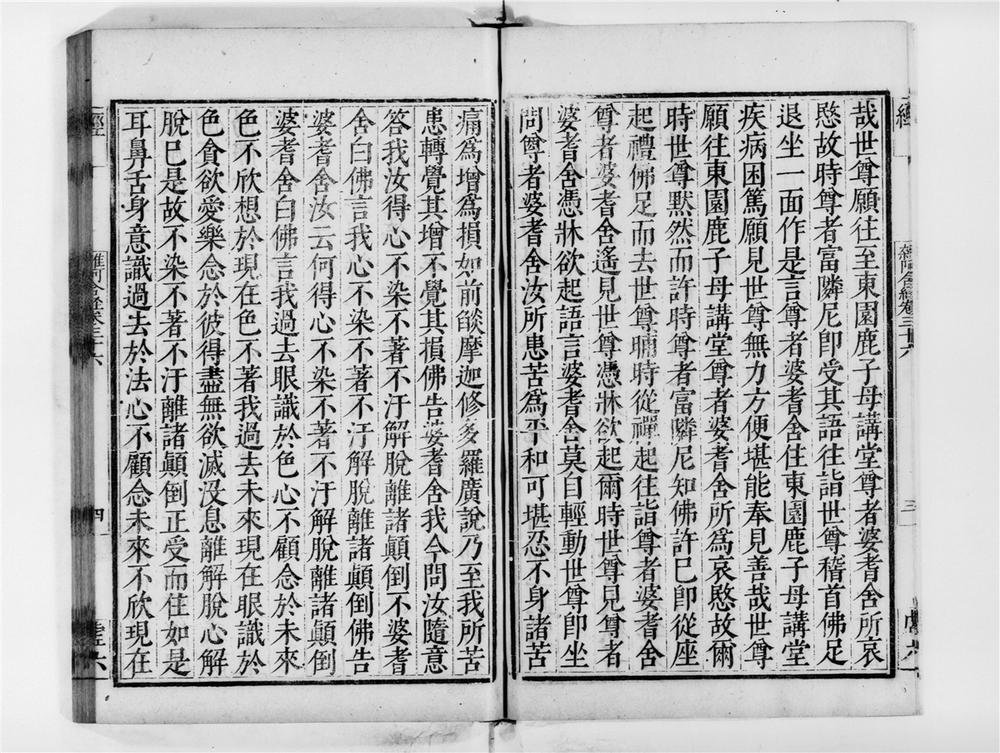 哉世尊願往至東園鹿子母講堂尊者婆耆舍所哀
愍故時尊者富隣尼即受其語往詣世尊稽首佛足
退坐一面作是言尊者婆耆舍住東園鹿子母講堂
疾病困篤願見世尊無力方便堪能奉見善哉世尊
願往東園鹿子母講堂尊者婆耆舍所為哀愍故爾
時世尊默然而許時尊者富隣尼知佛許已即從座
起禮佛足而去世尊晡時從禪起往詣尊者婆耆舍
尊者婆耆舍遙見世尊憑牀欲起爾時世尊見尊者
婆耆舍憑牀欲起語言婆耆舍莫自輕動世尊即坐
問尊者婆耆舍汝所患苦為平和可堪忍不身諸苦
痛為增為損如前𦦨摩迦修多羅廣說乃至我所苦
患轉覺其增不覺其損佛告婆耆舍我今問汝隨意
答我汝得心不染不著不汙解脫離諸顛倒不婆耆
舍白佛言我心不染不著不汙解脫離諸顛倒佛告
婆耆舍汝云何得心不染不著不汙解脫離諸顛倒
婆耆舍白佛言我過去眼識於色心不顧念於未來
色不欣想於現在色不著我過去未來現在眼識於
色貪欲愛樂念於彼得盡無欲滅沒息離解脫心解
脫已是故不染不著不汙離諸顛倒正受而住如是
耳鼻舌身意識過去於法心不顧念未來不欣現在
經
雜阿含經卷三十六
三
經
雜阿含經卷三十六
四